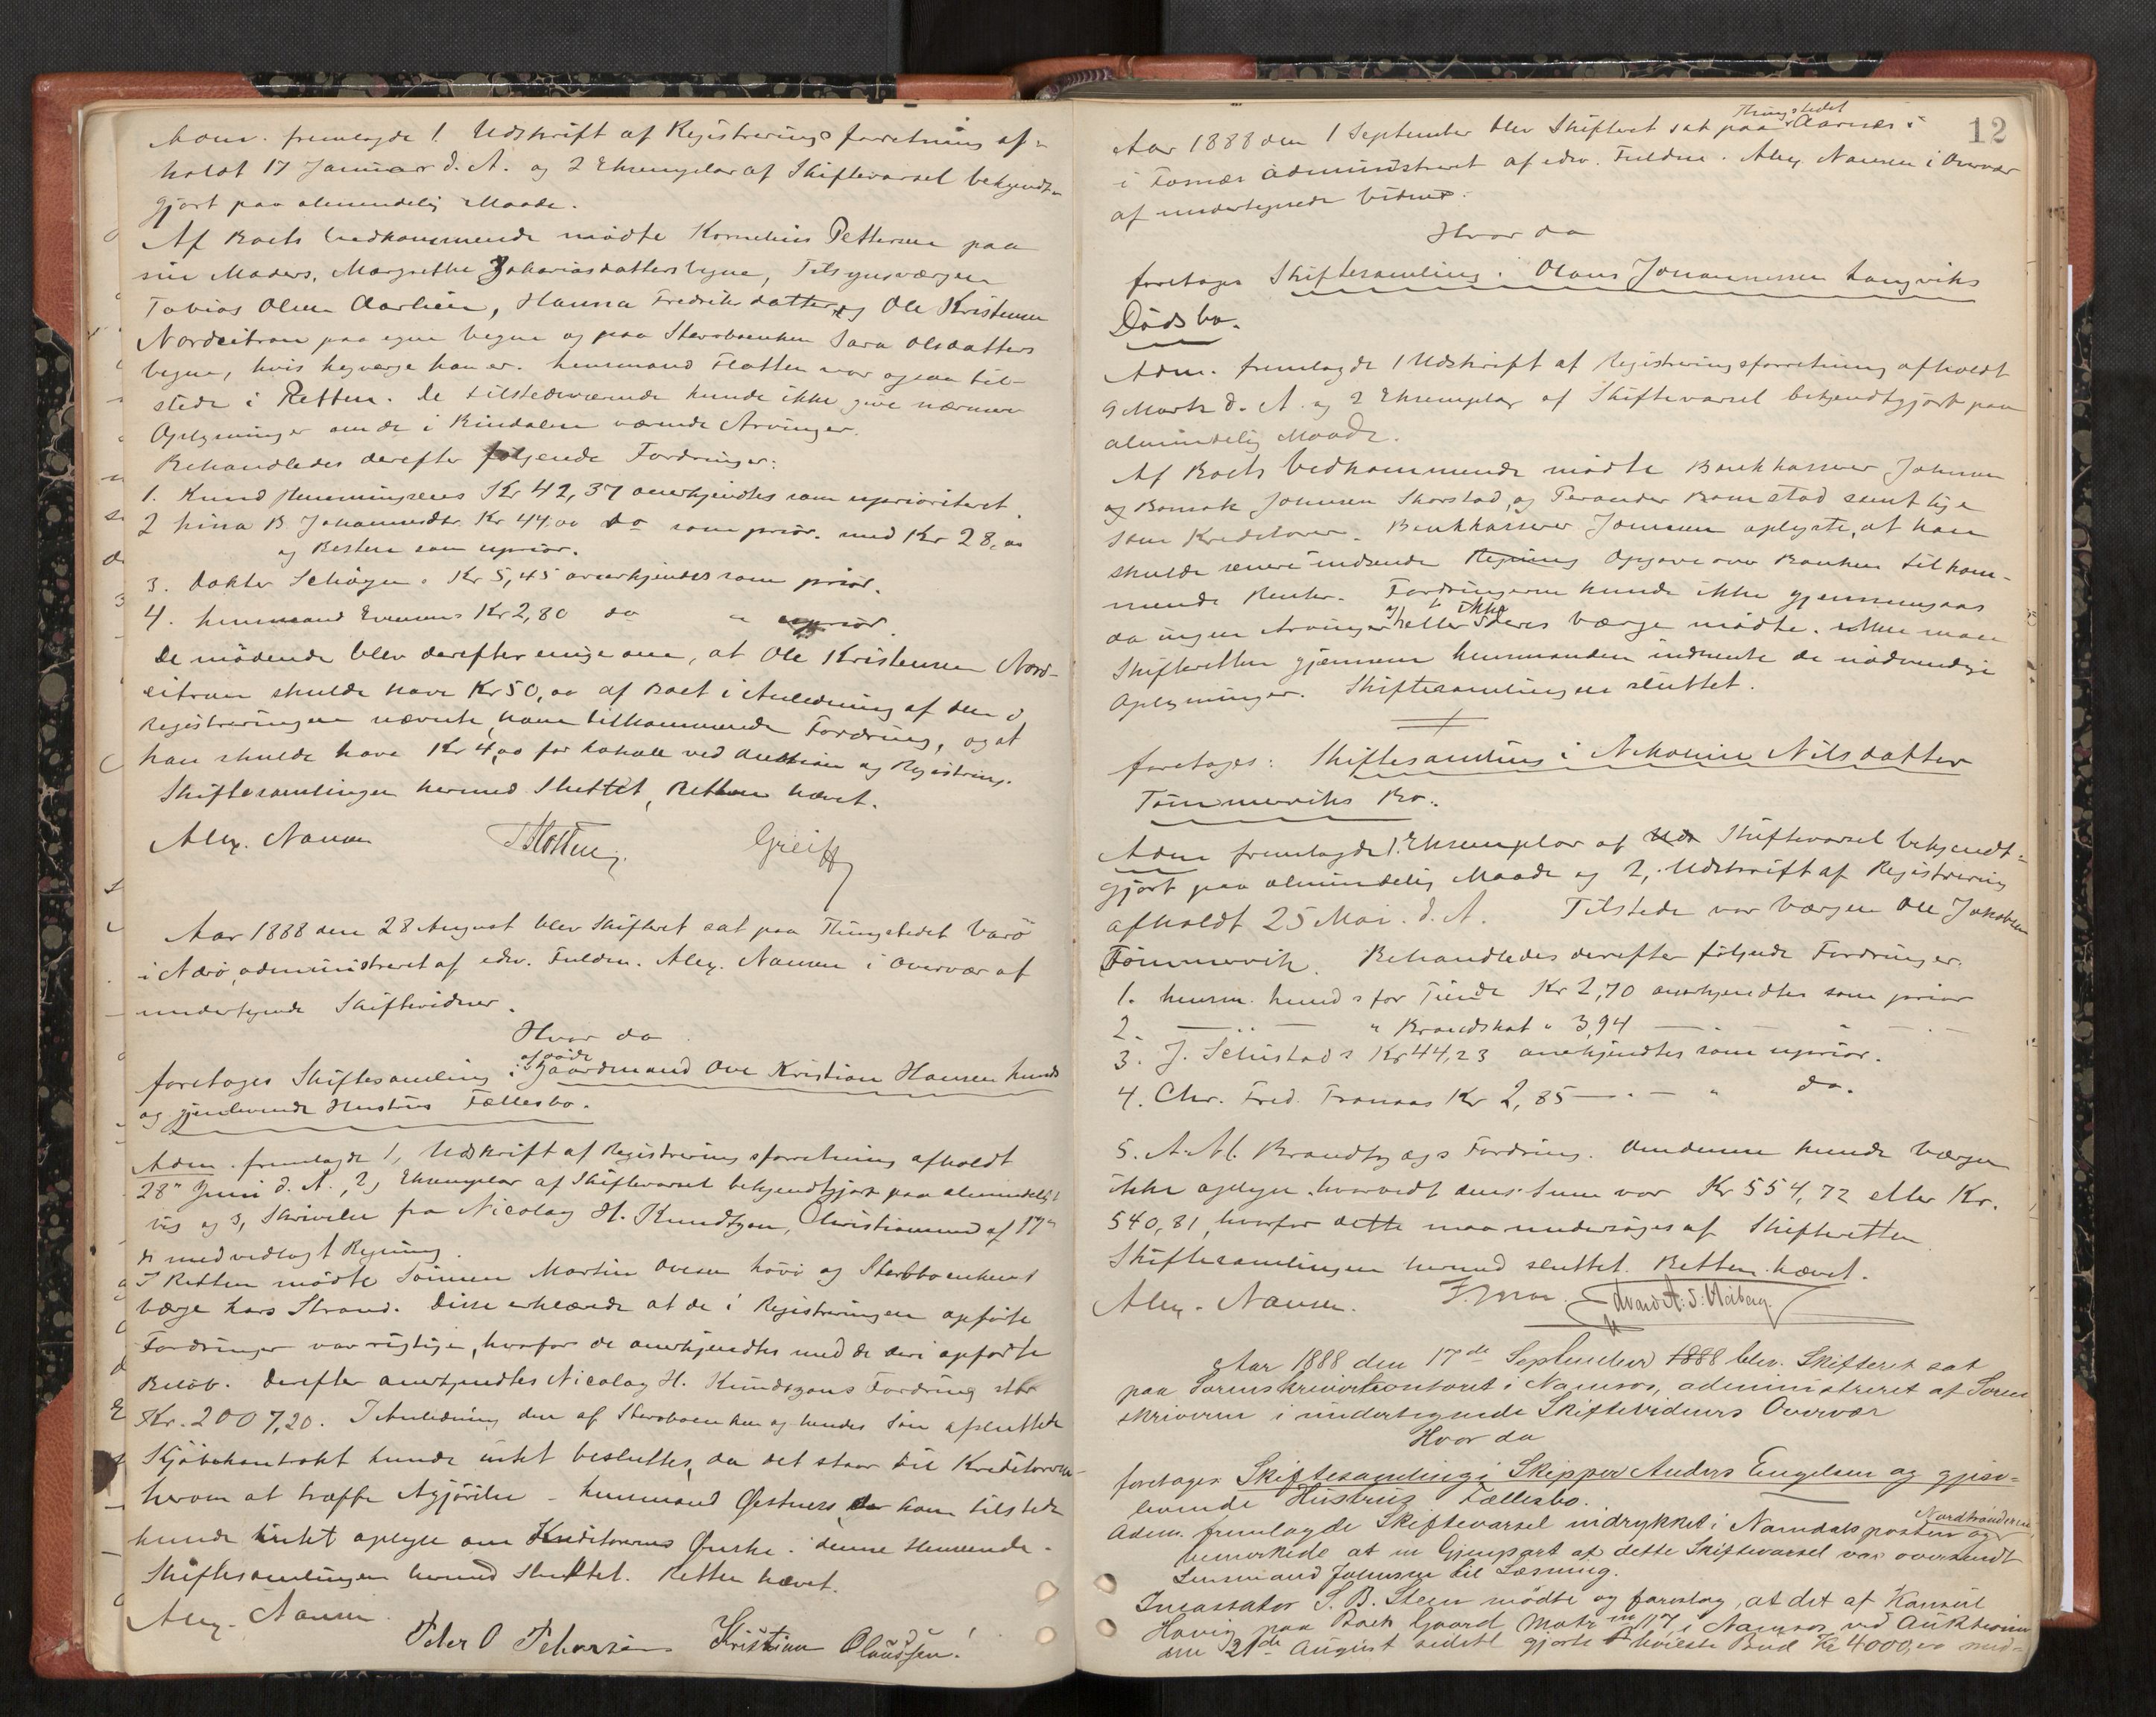 Adm. fremlagde 1. Udskrift af Registreringsforretning af-
holdt 17 Januar d. A. og 2 Exemplar af Skiftevarsel bekjendt-
gjort paa almindelig Maade.
Af Boets Vedkommende mødte Kornelius Pettersen paa
sin Moders, Margrethe Zakariasdatters Vegne, Tilsynsværgen
Tobias Olsen Aarlien, Hanna Fredriksdatter og Ole Kristensen
Nordeitran paa egne Vegne og paa Stervboenken Sara Olsdatters
Vegne, hvis Lagværge han er. Lensmand Flotten var ogsaa til-
stede i Retten. De tilstedeværende kunde ikke give nærmere
Oplysninger om de i Bindalen værende Arvinger.
Behandledes derefter følgende Fordringer:
1. Knud Henningsens Kr 42,37 anerkjendtes som uprioriteret.
2 Lina B. Johannesdtr. Kr 44,00 do som prior. med Kr 28,00
og Resten som uprior.
3. Doktor Kr 5,45 anerkjendes som prior.
4. Lensmand Kr 2,80 do " uprior.
De mødende blev derefter enige om, at Ole Kristensen Nord-
eitran skulde have Kr 50,00 af Boet i Anledning af den i
Registreringen nævnte, ham tilkommende Fordring, og at
han skulde have Kr 4,00 for Lokale ved Auktion og Registring.
Skiftesamlingen hermed sluttet, Retten hævet.
Alex. Nansen Greiff
Aar 1888 den 28 August blev Skifteret sat paa Thingstedet Varø
i Nærø, administreret af edsv. Fuldm. Alex. Nansen i Overvær af
undertegnede Skiftevidner.
Hvor da
foretoges Skiftesamling i afdøde Gaardmand Ove Kristian Hansen Lunds
og gjenlevende Hustrus Fællesbo.
Adm. fremlagde 1, Udskrift af Registreringsforretning afholdt
28de Juni d. A., 2, Exemplar af Skiftevarsel bekjendtgjort paa almindelig
vis og 3, Skrivelse fra Nicolay H. Knudtzon, Christiansund af 17de
ds med vedlagt Regning.
I Retten mødte Sønnen Martin Ovesen og Stervboenkens
Værge Lars Strand. Disse erklærede at de i Registreringen opførte
Fordringer var rigtige, hvorfor de anerkjendtes med de deri opførte
Beløb. Derefter anerkjendtes Nicolay H. Knudtzons Fordring stor
Kr. 2007,20. I Anledning den af Stervboenken og hendes Søn afsluttede
Kjøbekontrakt kunde intet besluttes, da det staar til Kreditorerne
herom at træffe Afgjørelse - Lensmand der kom tilstede
kunde intet oplyse om Kreditorernes Ønske i denne Henseende.
Skiftesamlingen hermed sluttet. Retten hævet.
Alex. Nansen
Peter O Petersen Kristian Olaussen.
12
Aar 1888 den 1 September blev Skifteret sat paa Thingstedet Aarnes i
i Fosnæs administreret af edsv. Fuldm. Alex. Nansen i Overvær
af undertegnede Vidner.
Hvor da
foretoges Skiftesamling i Olaus Johannessen Langviks
Dødsbo.
Adm. fremlagde 1 Udskrift af Registreringsforretning afholdt
9 Marts d. A. og 2 Exemplar af Skiftevarsel bekjendtgjort paa
almindelig Maade.
Af Boets Vedkommende mødte Bankkasserer Johnsen
og Jonsen Skorstad, og Romstad samtlige
som Kreditorer. Bankkasserer Jonsen oplyste, at han
skulde senere indsende Regning Opgave over Banken tilkom-
mende Renter. Fordringerne kunde ikke gjennemgaaes
da ingen Arvinger og heller ikke deres Værge mødte. Men maa
Skifteretten gjennem Lensmanden indhente de nødvendige
Oplysninger. Skiftesamlingen sluttet.
foretoges: Skiftesamling i Nekoline Nilsdatter
Tømmerviks Bo.
Adm fremlagde 1. Exemplar af Uds Skiftevarsel bekjendt-
gjort paa almindelig Maade og 2, Udskrift af Registrering
afholdt 25 Mai d. A. Tilstede var Værgen Ole Jakobsen
Tømmervik. Behandledes derefter følgende Fordringer.
1. Lensm. Lunds for Tiende Kr 2,70 anerkjendtes som prior
2. — " — " Brandskat " 3,94 — " — " —
3. J. Kr 44,23 anerkjendtes som uprior.
4. Chr. Fred. Tranaas Kr 2,85 — " — " do.
5. A. M. Brandtzægs Fordring. Om denne kunde Værgen
ikke oplyse hvorvidt dens Sum var Kr 554,72 eller Kr.
540,81, hvorfor dette maa undersøges af Skifteretten
Skiftesamlingen hermed sluttet. Retten hævet.
Alex. Nansen. Edvard A. S. Wiberg.
Aar 1888 den 17de September 1888 blev Skifteret sat
paa Sorenskriverkontoret i Namsos, administreret af Soren
skriveren i undertegnede Skiftevidners Overvær
Hvor da
foretoges Skiftesamling i Skipper Anders Engelsen og gjen-
levende Hustrus Fællesbo.
Adm. fremlagde Skiftevarsel indrykket i Namdalsposten og Nordtrønderen,
bemærkede at en Gjenpart af dette Skiftevarsel var oversendt
Lensmand Johnsen til Læsning.
Incassator S. B. Stein mødte og foreslog, at det af Konsul
Havig paa Boets Gaard Matr no 117 i Namsos ved Auktionen
den 21de August sidstl gjorte høieste Bud Kr 4000,00 med-